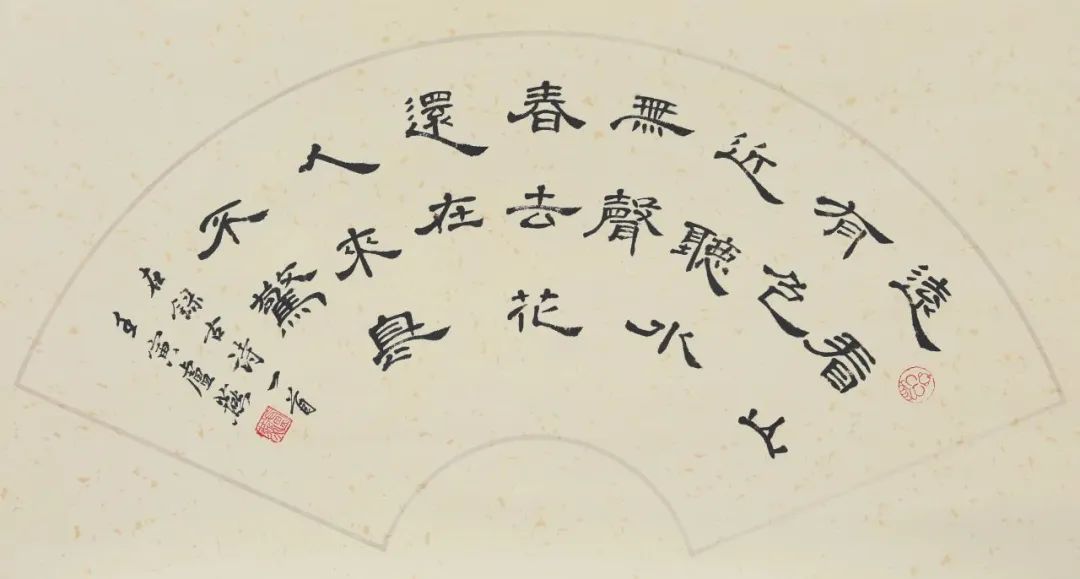 遠看山
有色
近聽水
無聲
春去花
還在
人來鳥
不驚
右錄古诗一首
壬寅盧